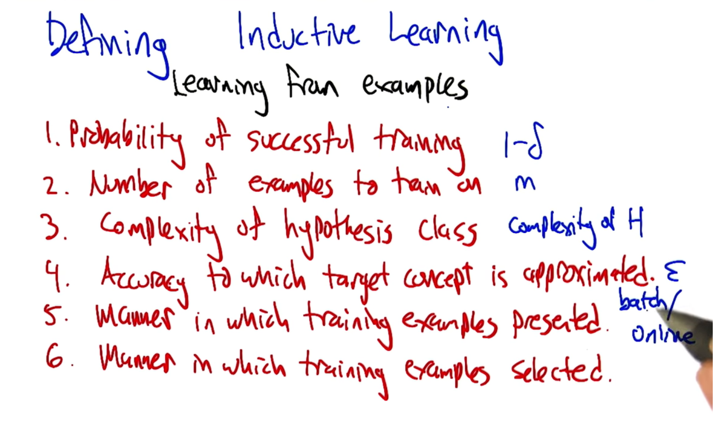 Defining Inductive Learning
Learning from examples
1. Probability of successful training 1-δ
2. Number of examples to train on m
3. Complexity of hypothesis class complexity of H
4. Accuracy to which target concept is approximated. ε
5. Manner in which training examples presented. batch/
online
6. Manner in which training examples selected.